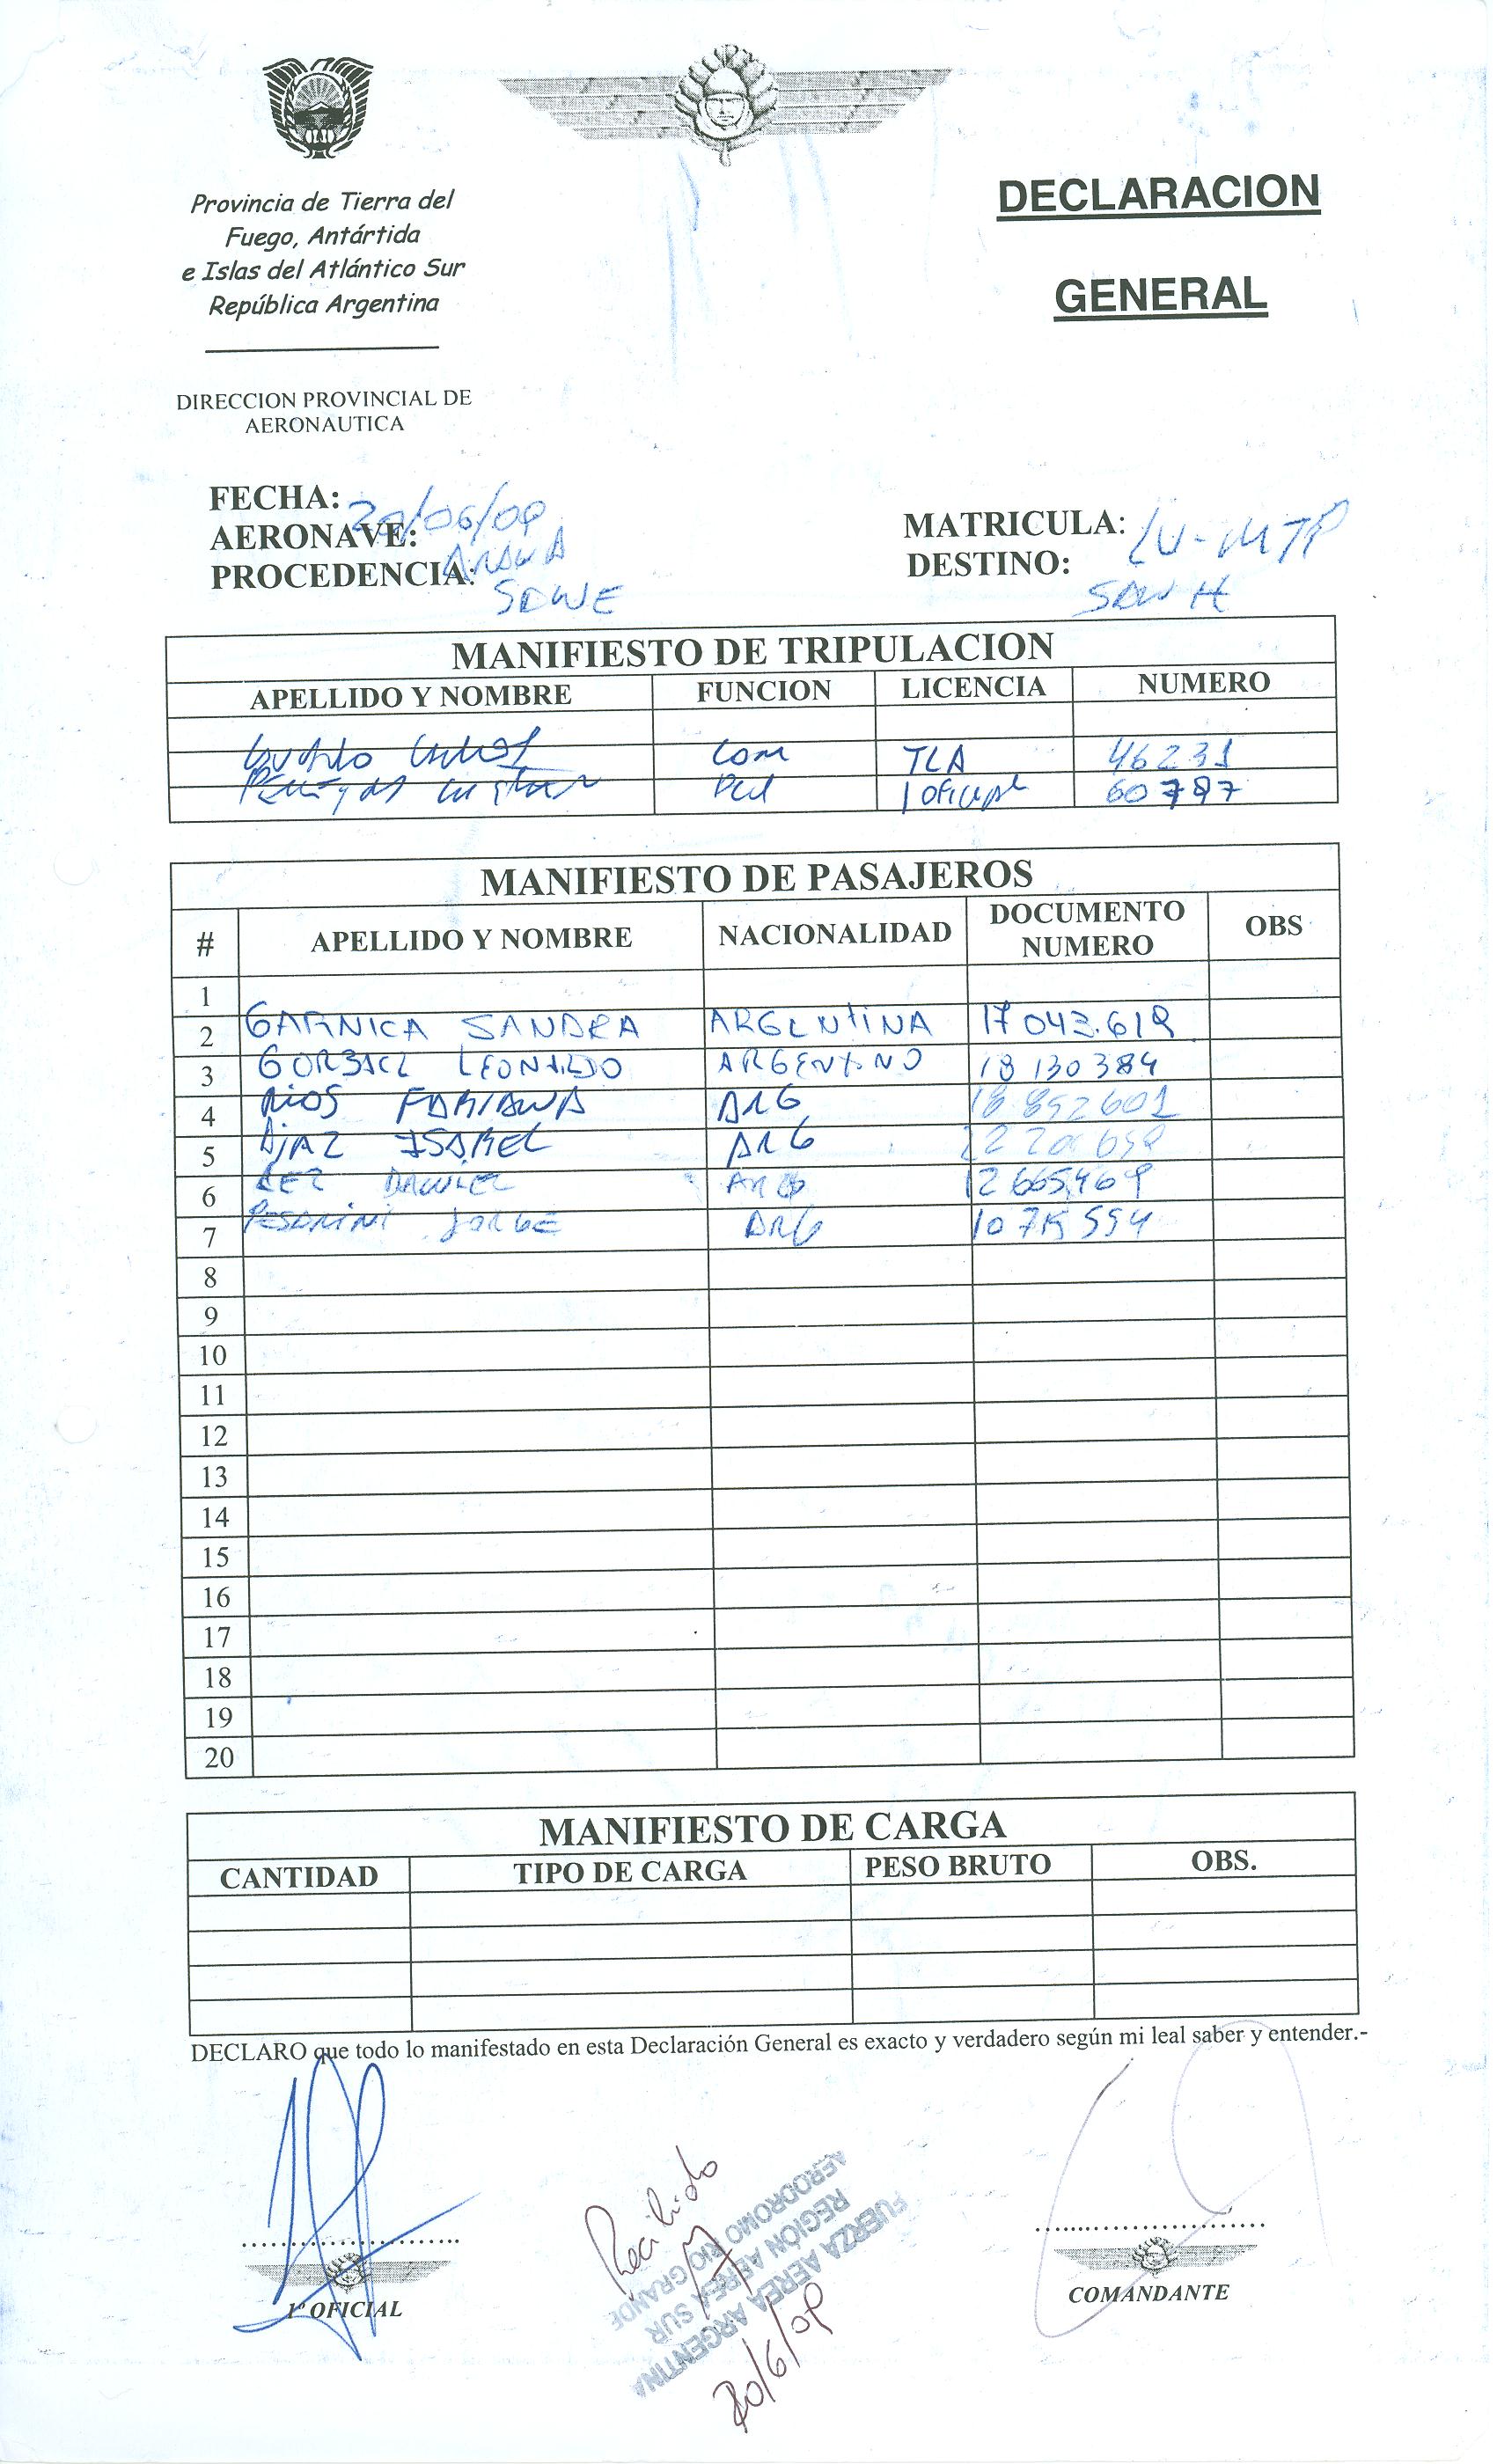 Provincia de Tierra del
Fuego, Antártida
e Islas del Atlántico Sur
República Argentina
DECLARACION
GENERAL
DIRECCION PROVINCIAL DE
AERONAUTICA
FECHA: 20/06/09
AERONAVE: ARAVA
PROCEDENCIA: SAWE
MATRICULA: LV-MTP
DESTINO: SAWH
MANIFIESTO DE TRIPULACION
APELLIDO Y NOMBRE FUNCION LICENCIA NUMERO
Com TLA 46231
60787
MANIFIESTO DE PASAJEROS
# APELLIDO Y NOMBRE NACIONALIDAD DOCUMENTO NUMERO OBS
1
2 GARNICA SANDRA ARGENTINA 17 043.619
3 LEONARDO ARGENTINO 18 130 384
4 RIOS FABIANA ARG 18 892 601
5 DIAZ ISABEL ARG
6 DANIEL ARG 12 665,469
7 JORGE ARG
8
9
10
11
12
13
14
15
16
17
18
19
20
MANIFIESTO DE CARGA
CANTIDAD TIPO DE CARGA PESO BRUTO OBS.
DECLARO que todo lo manifestado en esta Declaración General es exacto y verdadero según mi leal saber y entender.-
1º OFICIAL
COMANDANTE
Recibido
FUERZA AEREA ARGENTINA
REGIÓN AEREA SUR
AERODROMO RIO GRANDE
20/6/09